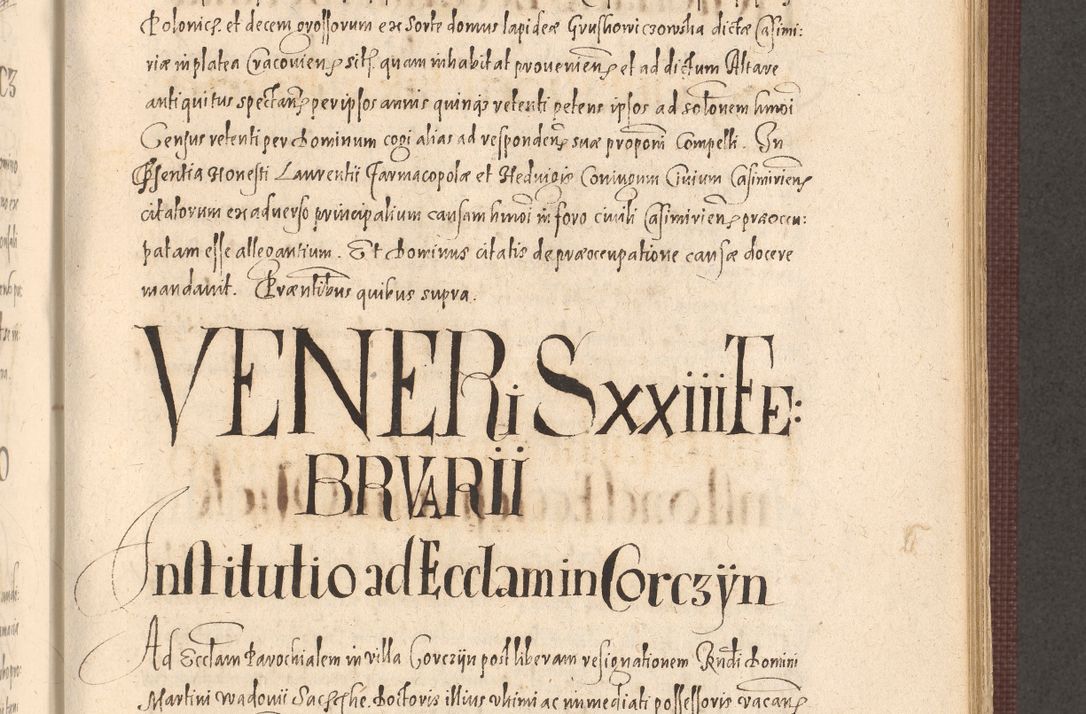 Polonicz. et decem grossorum ex sorte domus lapideæ Grushowiczowska dictæ Casimi:
riæ in platea Cracovien sit. quam inhabitat provenien et ad dictum Altare
antiquitus spectan per ipsos annis quinqz retenti petens ipsos ad solonem hmoi
Census retenti per dominum cogi alias ad responden suæ proponi Compelli. In
Psentia Honesti Laurentii Farmacopolæ et Hedvigis Coniugum Civium Casimirien
citatorum ex adverso principalium causam hmoi in foro civili Casimirien præoccu:
patam esse allegantium. Et dominus citatis de præoccupatione causæ docere
mandavit. Præntibus quibus supra.
VENERiS xxiii FE:
BRVARII
Institutio ad Ecclam in Corczÿn
Ad Ecclam Parochialem in villa Corczÿn post liberam resignationem Rndi domini
Martini Wadovii Sac. The. doctoris illius ultimi ac immediati possessoris vacan